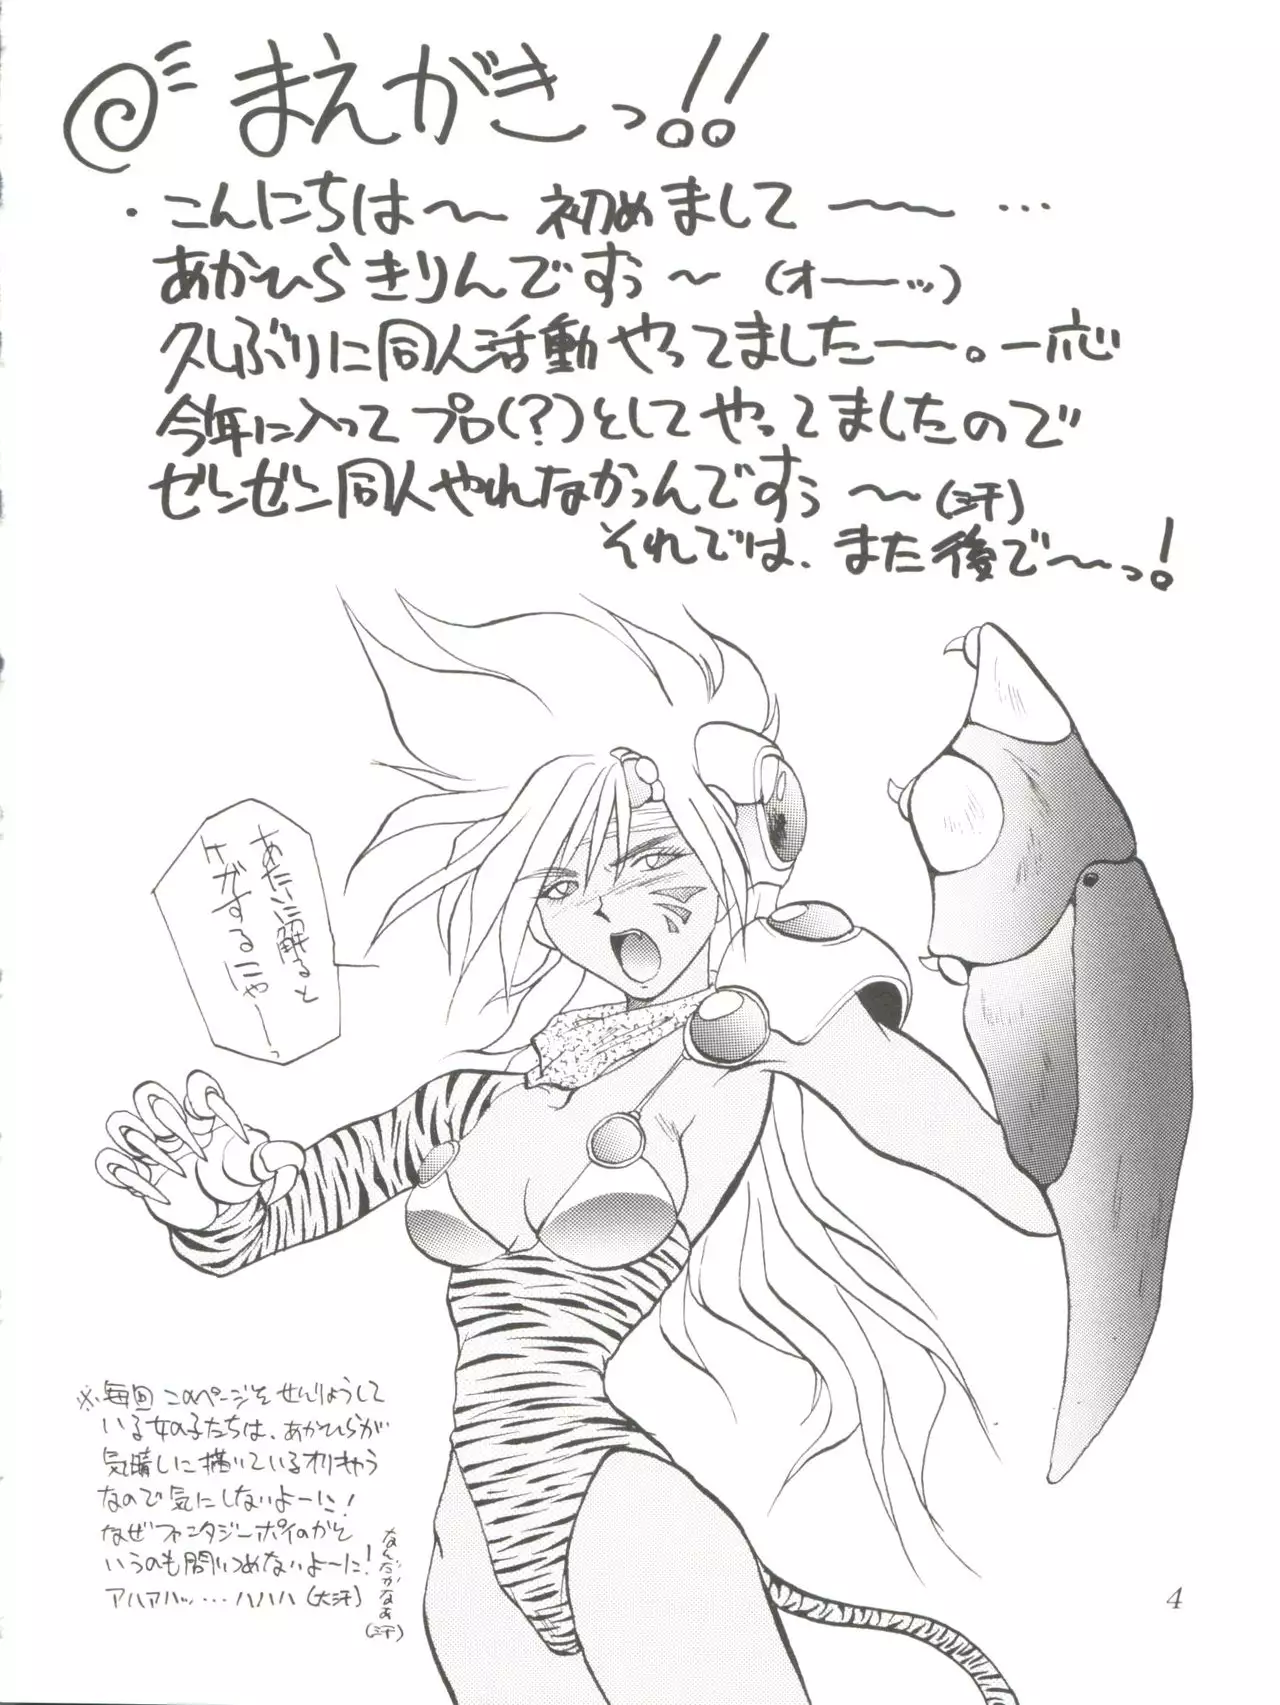 まえがきっ!!
・こんにちは〜〜 初めまして 〜〜 …
あかひらきりんですぅ〜 (オーーッ)
久しぶりに同人活動やってましたーー。一応
今年に入ってプロ(?)としてやってましたので
ゼンゼン同人やれなかったんですぅ 〜〜(汗)
それでは、また後で〜〜っ!
あたいに触ると
ケガするにゃーーっ
※毎回このページをせんりょうして
いる女の子たちは、あかひらが
気晴しに描いているオリキャラ
なので気にしないよーに!
なぜファンタジーポイのかと
いうのも問いつめないよーに!
アハアハッ・・・ハハハ(大汗)
なんだかなあ
(汗)
4